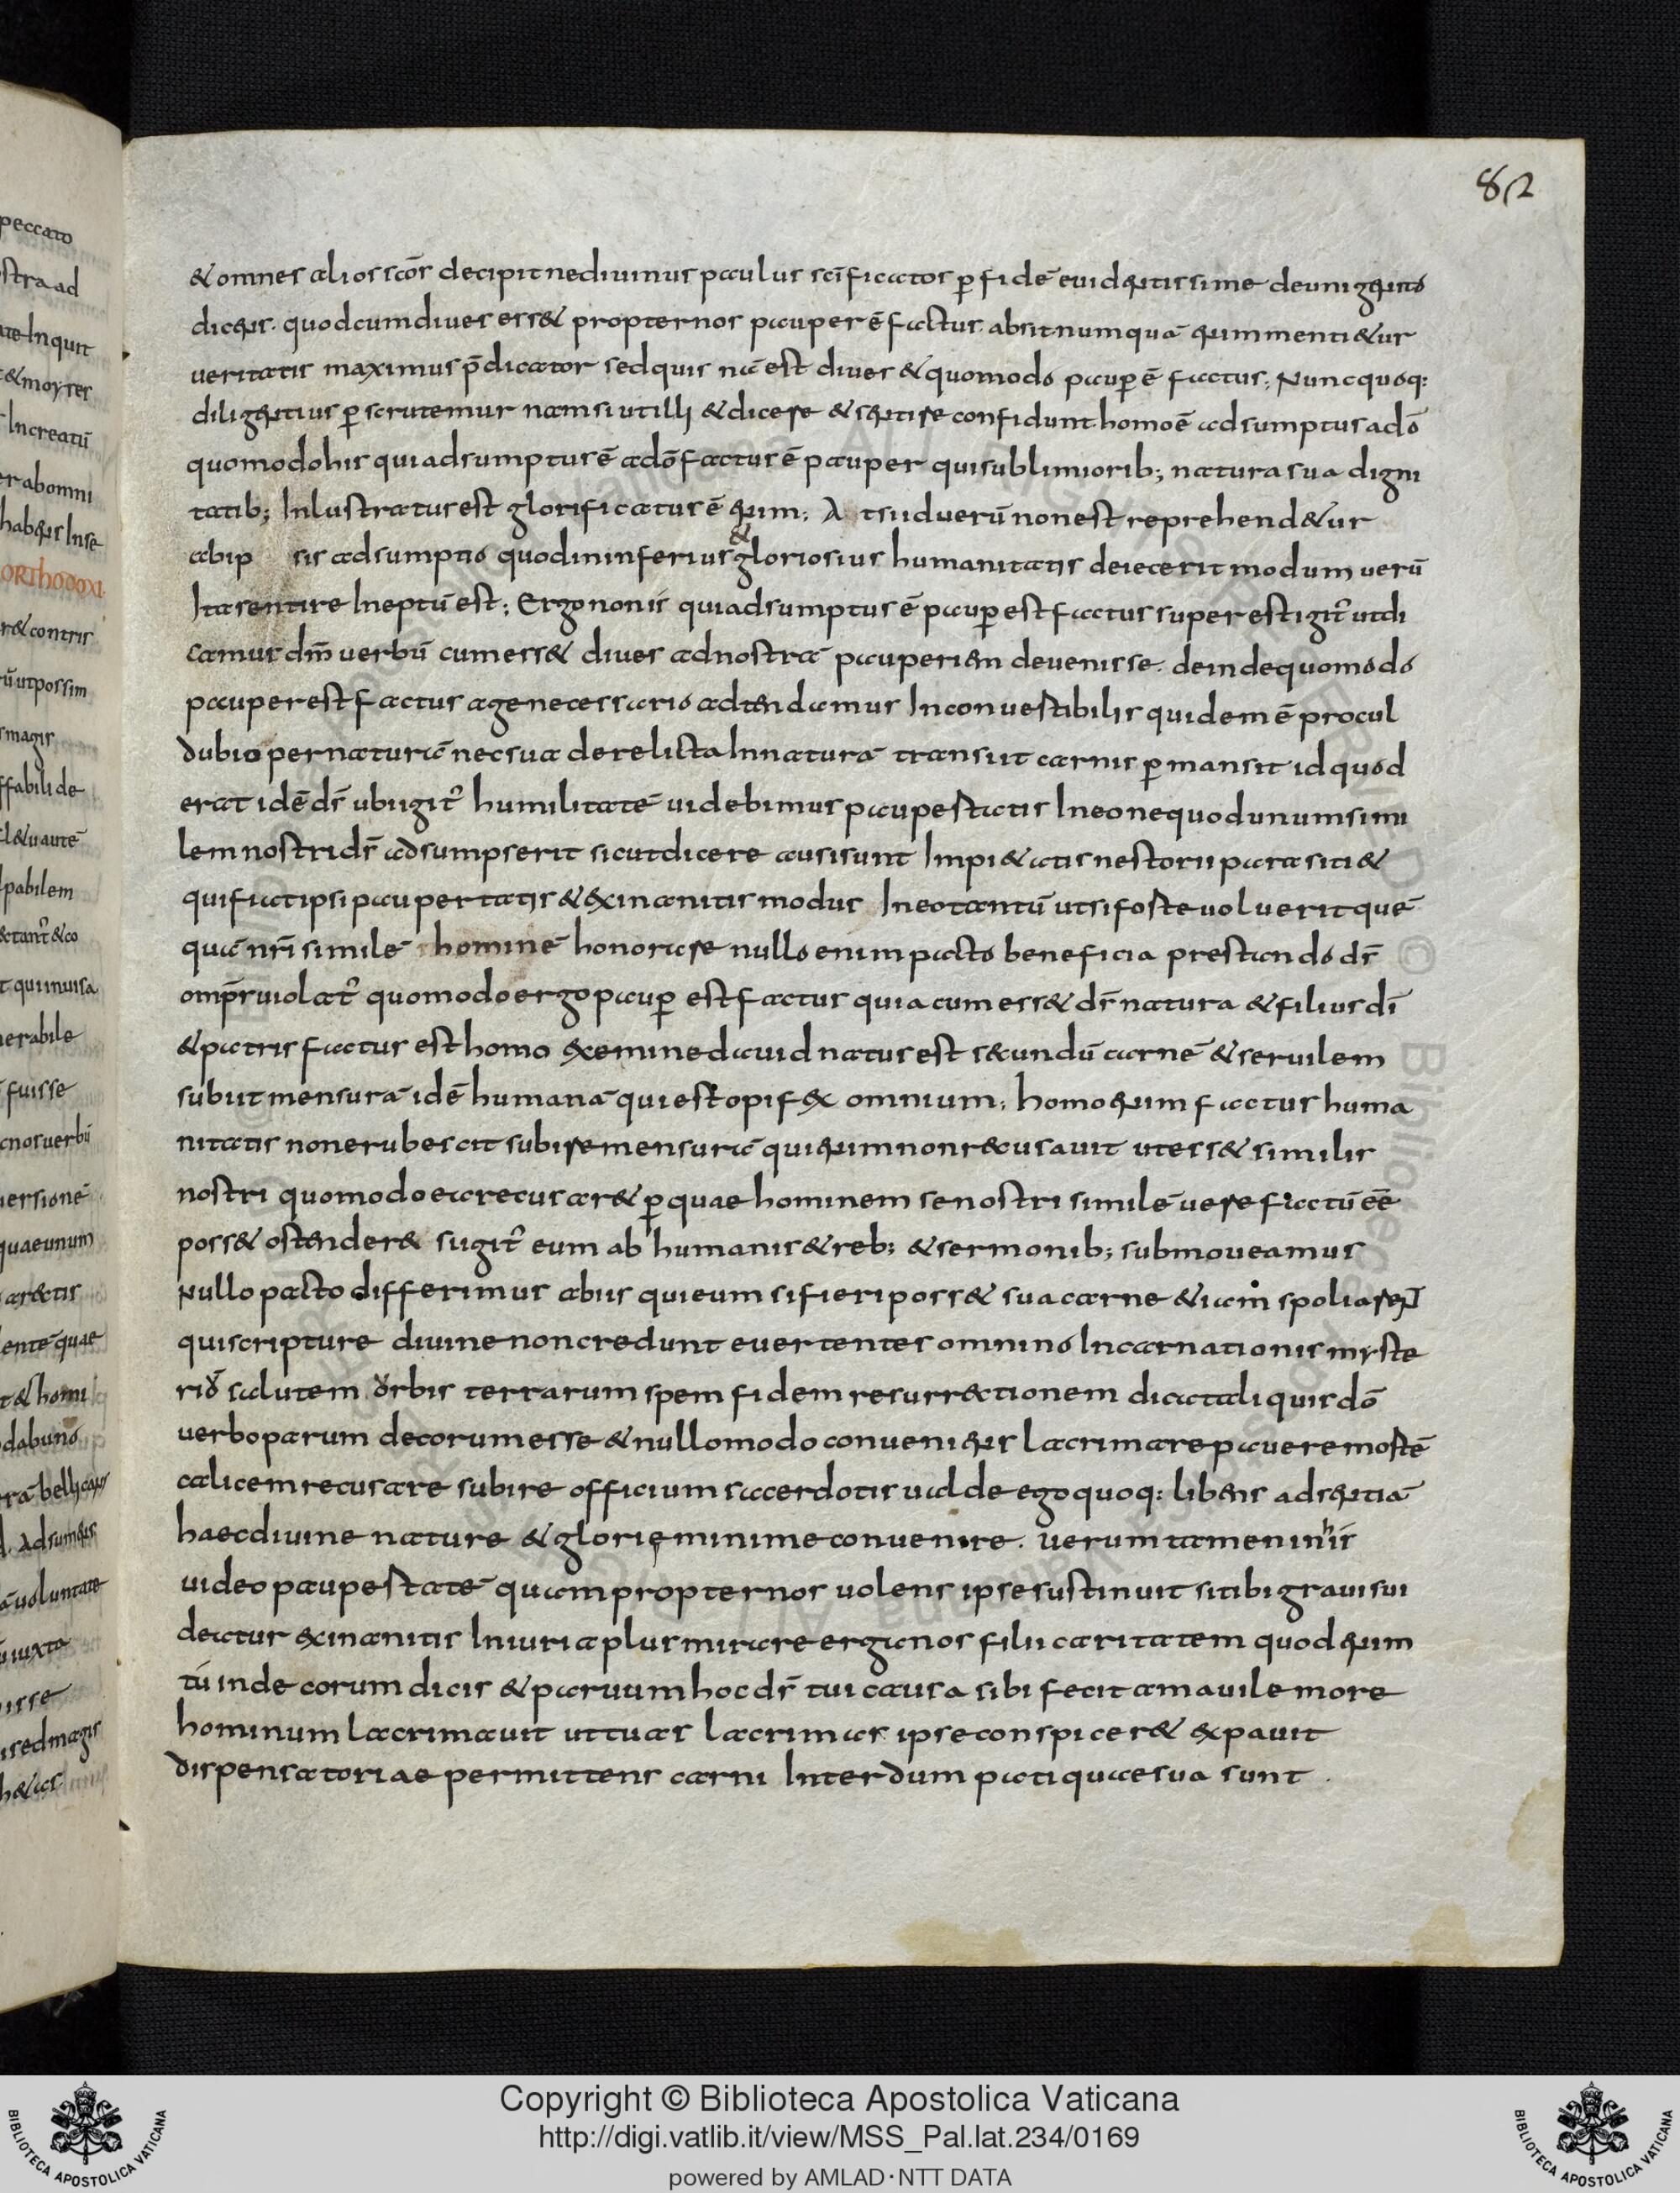 82
& omnes alios scōs decipit ne diuinus paulus scīficatos p̄ fidē euidentissime de unigenito
dicens. quod cum diues ess& propter nos pauper ē factus. absit numquā enim menti&ur
ueritatis maximus p̄dicator sed quis nā est diues & quomodo paup̄ ē factus; Nunc quoq:
diligentius p̄scrutemur nam si ut illi & dicere & sentire confidunt homo ē adsumptus a dō
quomodo his qui adsumptus ē a dō factus ē pauper qui sublimiorib; natura sua digni
tatib; Inlustratus est glorificatus ē enim; A t si id uerū non est reprehend&ur
ab ip sis adsumptio quod in inferius & gloriosius humanitatis deiecerit modum uerū
Ita sentire Ineptū est; Ergo non is qui adsumptus ē paup̄ est factus super est igit̄ ut di
camus dm̄ uerbū cum ess& diues ad nostrā pauperiem deuenisse. deinde quomodo
pauper est factus age necessario adtendamus Inconuestibilis quidem ē procul
dubio per naturā nec sua derelicta In naturā transiit carnis p̄mansit id quod
erat idē ds̄ ubi igit̄ humilitatē uidebimus paupestatis In eo ne quod unum simi
lem nostri ds̄ adsumpserit sicut dicere ausi sunt Impi&atis nestorii parasiti &
qui fiat ipsi paupertatis & exinanitis modus In eo tantū ut si foste uoluerit quē
quā nr̄i similē hominē honorare nullo enim pacto beneficia prestando ds̄
omp̄s uiolat̄ quomodo ergo paup̄ est factus quia cum ess& ds̄ natura & filius dī
& patris factus est homo ex semine dauid natus est s&undū carnē & seruilem
subiit mensurā idē humanā qui est opifex omnium; homo enim factus huma
nitatis non erubescit subire mensurā qui enim non r&usauit ut ess& similis
nostri quomodo ea recusar& p̄ quae hominem se nostri similē uere factū eē
poss& ostender& si igit̄ eum ab humanis & reb; & sermonib; submoueamus
Nullo pacto differimus ab iis qui eum si fieri poss& sua carne & iam spoliare
qui scripture diuine non credunt euertentes omnino Incarnationis myste
riō salutem orbis terrarum spem fidem resurr&tionem dicat aliquis dō
uerbo parum decorum esse & nullo modo conueniens lacrimare pauere mostē
calicem recusare subire officium sacerdotis ualde ego quoq: libens adsentiā
haec diuine nature & glorię minime conuenire. uerum tamen in his
uideo paupestatē quam propter nos uolens ipse sustinuit si tibi grauis ui
deatur exinanitis Iniuria plus mirare erga nos filii caritatem quod enim
tú indecorum dicis & paruum hoc ds̄ tui causa sibi fecit amauile more
hominum lacrimauit ut tuas lacrimas ipse conspicer& expauit
dispensatoriae permittens carni Interdum pati quae sua sunt.
Copyright © Biblioteca Apostolica Vaticana
http://digi.vatlib.it/view/MSS_Pal.lat.234/0169
powered by AMLAD·NTT DATA
BIBLIOTECA APOSTOLICA VATICANA
BIBLIOTECA APOSTOLICA VATICANA